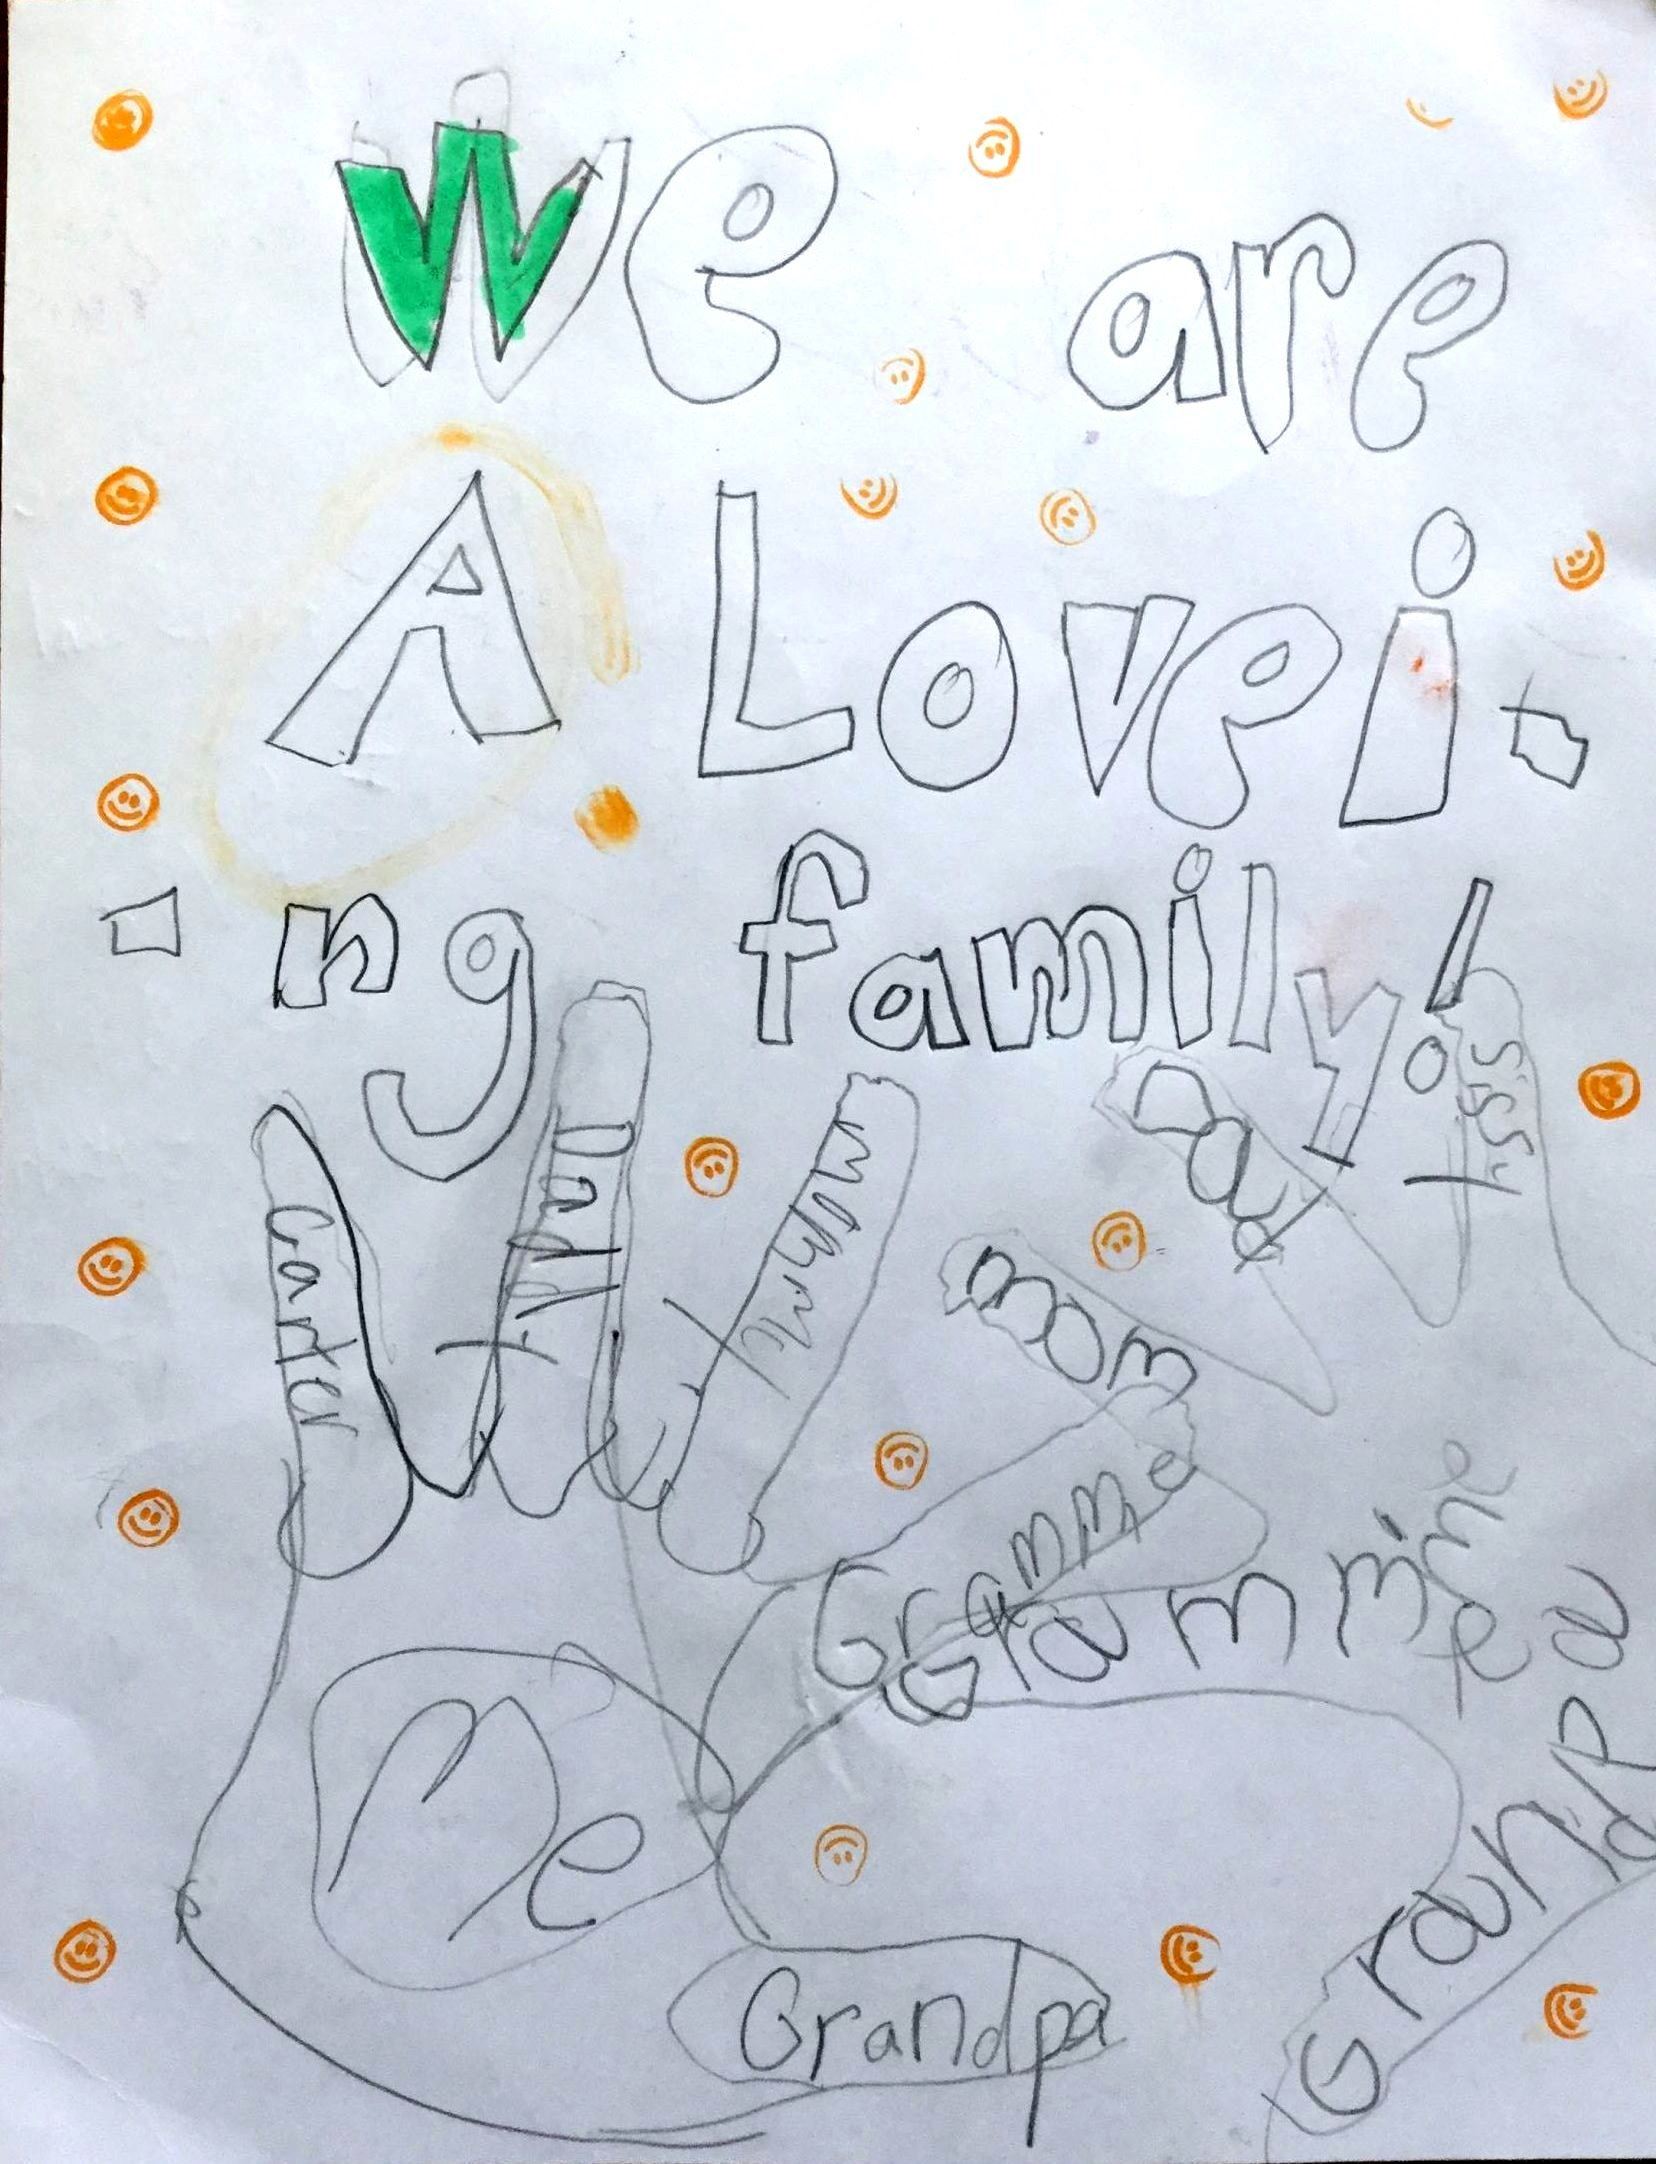 We are
A Lovei-
-ng family!
Carter
Dad
Dad
mom
Gramme
Grammie
Me
Grandpa
Grandpa